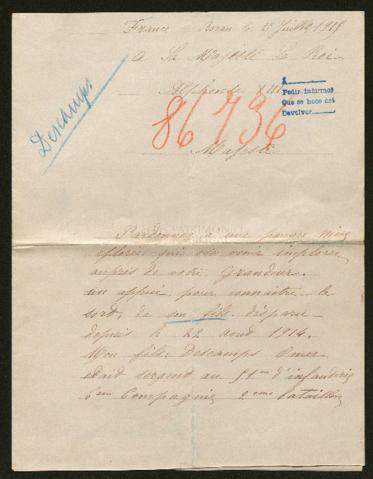 France Boran le 27 Juillet 1915
A Sa Majesté Le Roi
Alphonse XIII
Descamps
A
Pedir informes
Que se hace así
Devolver
86736
Majesté
Pardonnez à une pauvre mère
éplorée, qui ose venir implorer
auprès de votre Grandeur
un appui, pour connaitre le
sort, de son fils disparu
depuis le 22 aout 1914.
Mon fils, Descamps Omer
était sergent au 51me d'infanterie
6me Compagnie 2eme bataillon